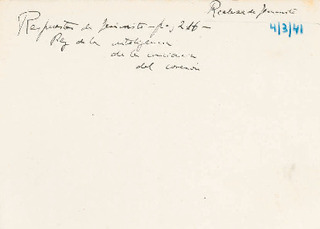 Realeza de Jesucristo
4/3/41
Respuestas de Jesucristo - pag 216 -
Rey de la inteligencia
de la conciencia
del corazón